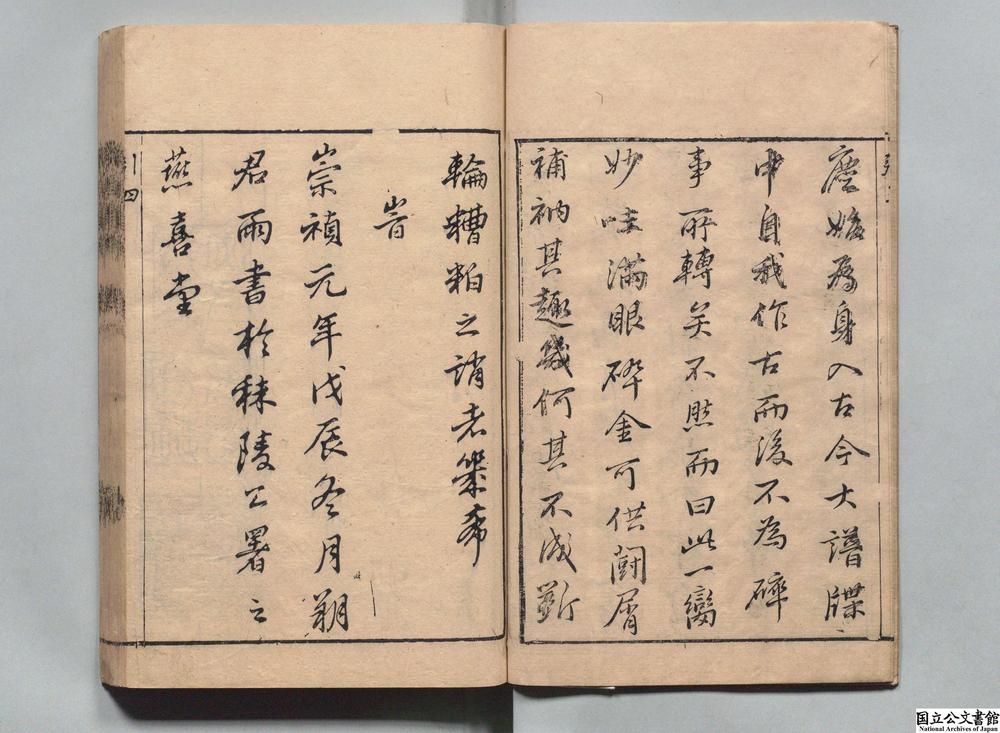 塵始爲身入古今大譜牒
中自我作古而後不為碎
事所轉矣不然而曰此一臠
妙味滿眼碎金可供鬪屑
補衲其趣幾何其不成斲
輪糟粕之誚者幾希
崇禎元年戊辰冬月朔
君雨書於秣陵公署之
燕喜堂
引四
国立公文書館
National Archives of Japan